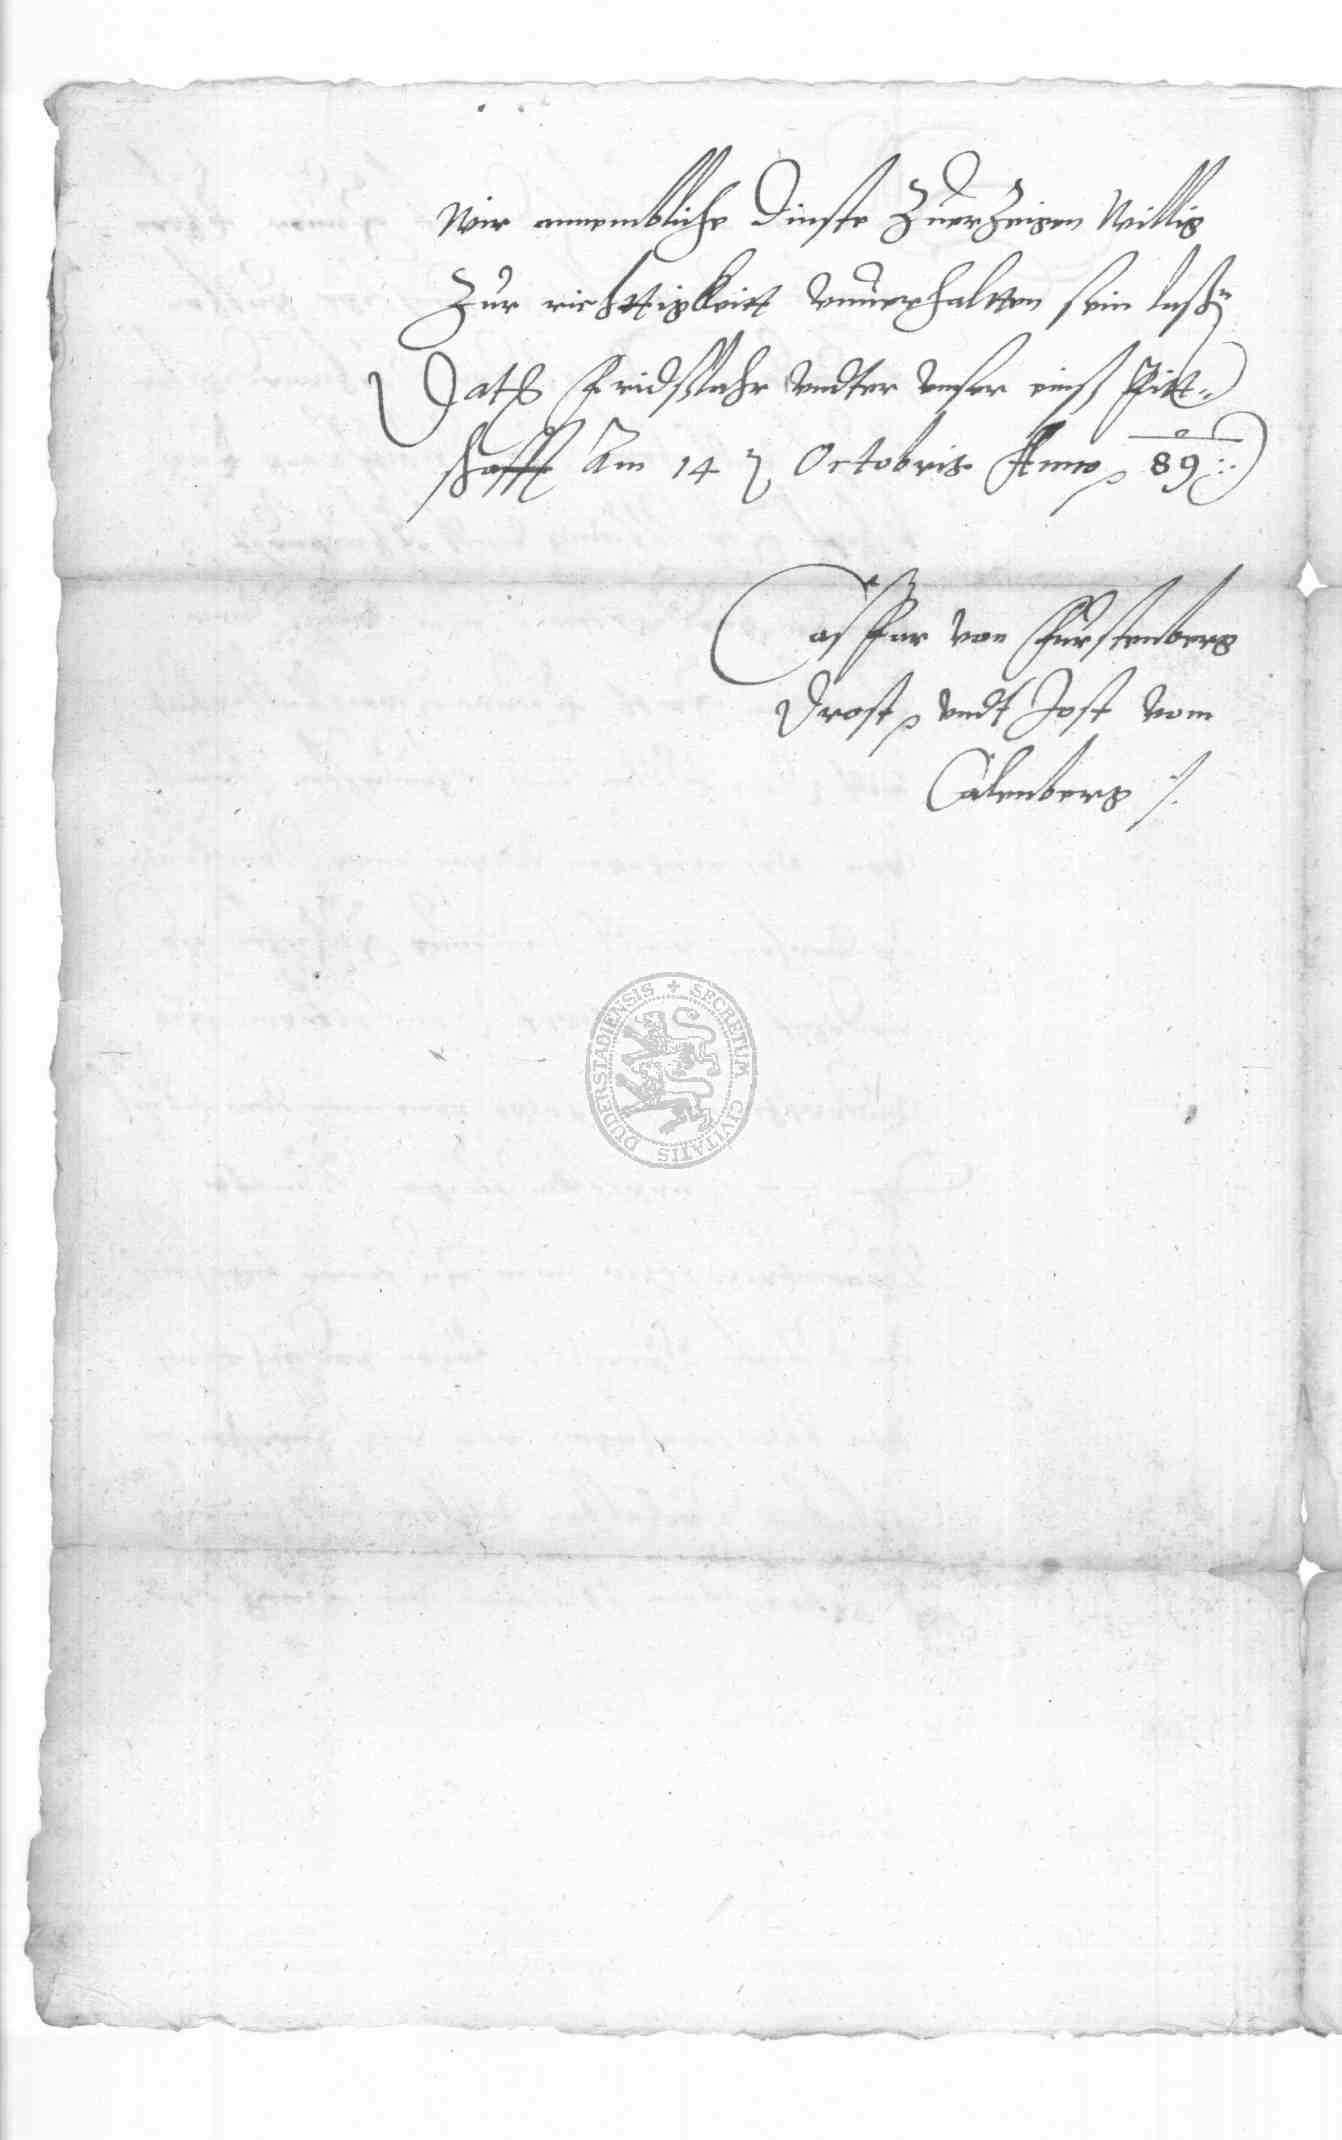 Wir annembliche Dinste Zuerzeigen Willig
Zur richttigkeitt vnuerhaltten sein laßen
Dat: Fridßlahr vndter vnser einß Pitt-
schafft Am 14 Octobris Anno 89
Caspar von Furstenberg
Drost vndt Jost vom
Calenberg /.
DUDERSTADIENSIS + SECRETUM CIVITATIS